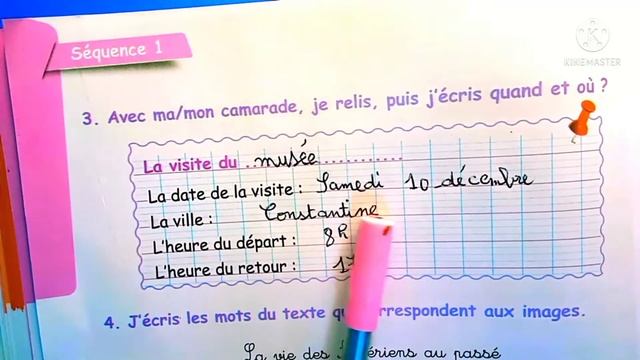 KINEMASTER
Séquence 1
3. Avec ma/mon camarade, je relis, puis j'écris quand et où ?
La visite du ..musée............
La date de la visite : Samedi 10 décembre
La ville : Constantine
L'heure du départ : 8h
L'heure du retour :
4. J'écris les mots du texte rrespondent aux images.
La vie des ériens au passé